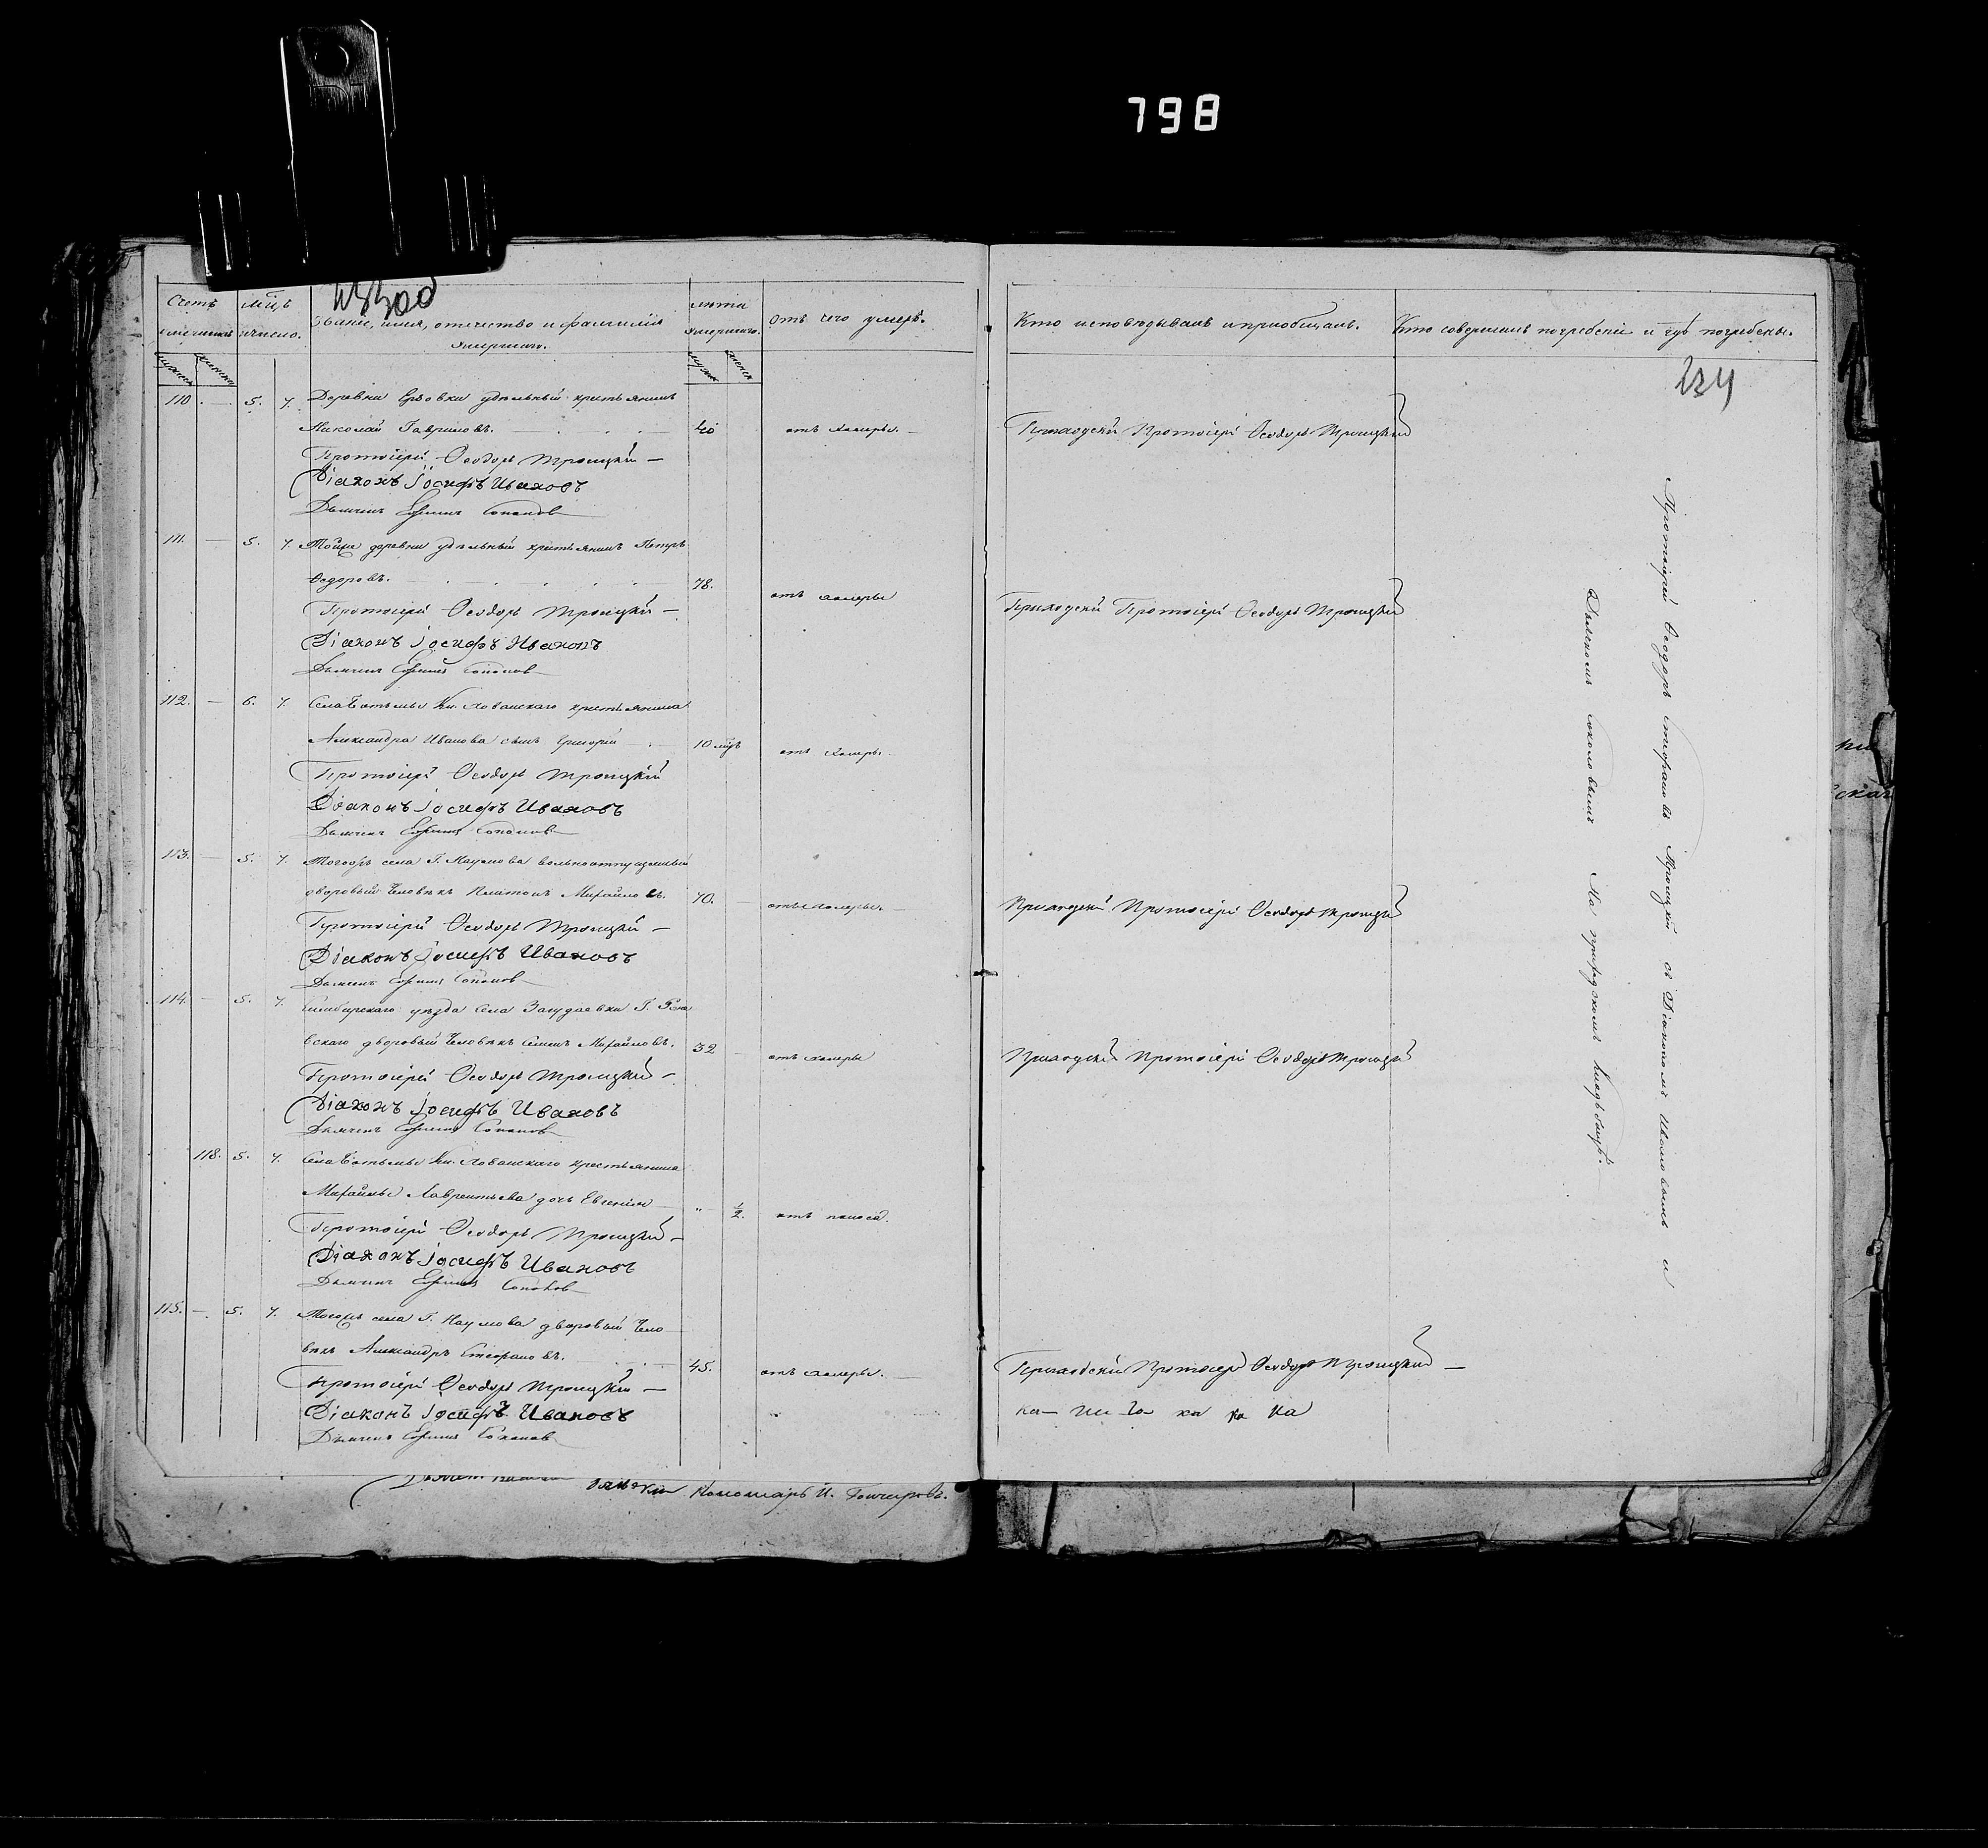 798
234
Счетъ умершихъ
Мцъ и число.
Званіе, имя, отечество и фамилія умершаго.
Лѣта умершаго.
Отъ чего умеръ.
Кто исповѣдывалъ и пріобщалъ.
Кто совершалъ погребеніе и гдѣ погребены.
110 — 5. 7. Деревни удѣльный крестьянинъ
Николай Гавриловъ. 40 отъ холеры. Приходскій Протоіерей Ѳеодоръ Троицкій
Протоіерей Ѳеодоръ Троицкій —
Діаконъ Іосифъ Ивановъ
Дьячекъ
111. — 5. 7. Тойже деревни удѣльный крестьянинъ Петръ
Ѳедоровъ. 78. отъ холеры Приходскій Протоіерей Ѳеодоръ Троицкій
Протоіерей Ѳеодоръ Троицкій —
Діаконъ Іосифъ Ивановъ
Дьячекъ
112. — 6. 7. Села Ботьмы Кн. Хованскаго крестьянина
Александра Иванова сынъ Григорій 10 мцъ отъ холеры.
Протоіерей Ѳеодоръ Троицкій
Діаконъ Іосифъ Ивановъ
Дьячекъ
113. — 5. 7. Тогожъ села Г. Наумова вольноотпущенный
дворовый человѣкъ Платонъ Михайловъ. 70. отъ холеры Приходскій Протоіерей Ѳеодоръ Троицкій
Протоіерей Ѳеодоръ Троицкій —
Діаконъ Іосифъ Ивановъ
Дьячекъ
114. — 5. 7. Симбирскаго уѣзда села Г.
дворовый человѣкъ Семенъ Михайловъ. 32 отъ холеры Приходскій Протоіерей Ѳеодоръ Троицкій
Протоіерей Ѳеодоръ Троицкій —
Діаконъ Іосифъ Ивановъ
Дьячекъ
118. 5. 7. Села Ботьмы Кн. Хованскаго крестьянина
Михаилы Лаврентьева дочь Евгенія „ ½. отъ поноса.
Протоіерей Ѳеодоръ Троицкій —
Діаконъ Іосифъ Ивановъ
Дьячекъ
115. — 5. 7. Тогожъ села Г. Наумова дворовый чело
вѣкъ Александръ Стефановъ. 45. отъ холеры. Приходскій Протоіерей Ѳеодоръ Троицкій —
Протоіерей Ѳеодоръ Троицкій —
Діаконъ Іосифъ Ивановъ
Дьячекъ
Протоіерей Ѳеодоръ Стефановъ Троицкій съ Діакономъ и
Дьячкомъ На приходскомъ кладбищѣ.
Пономарь И. Гончаровъ.